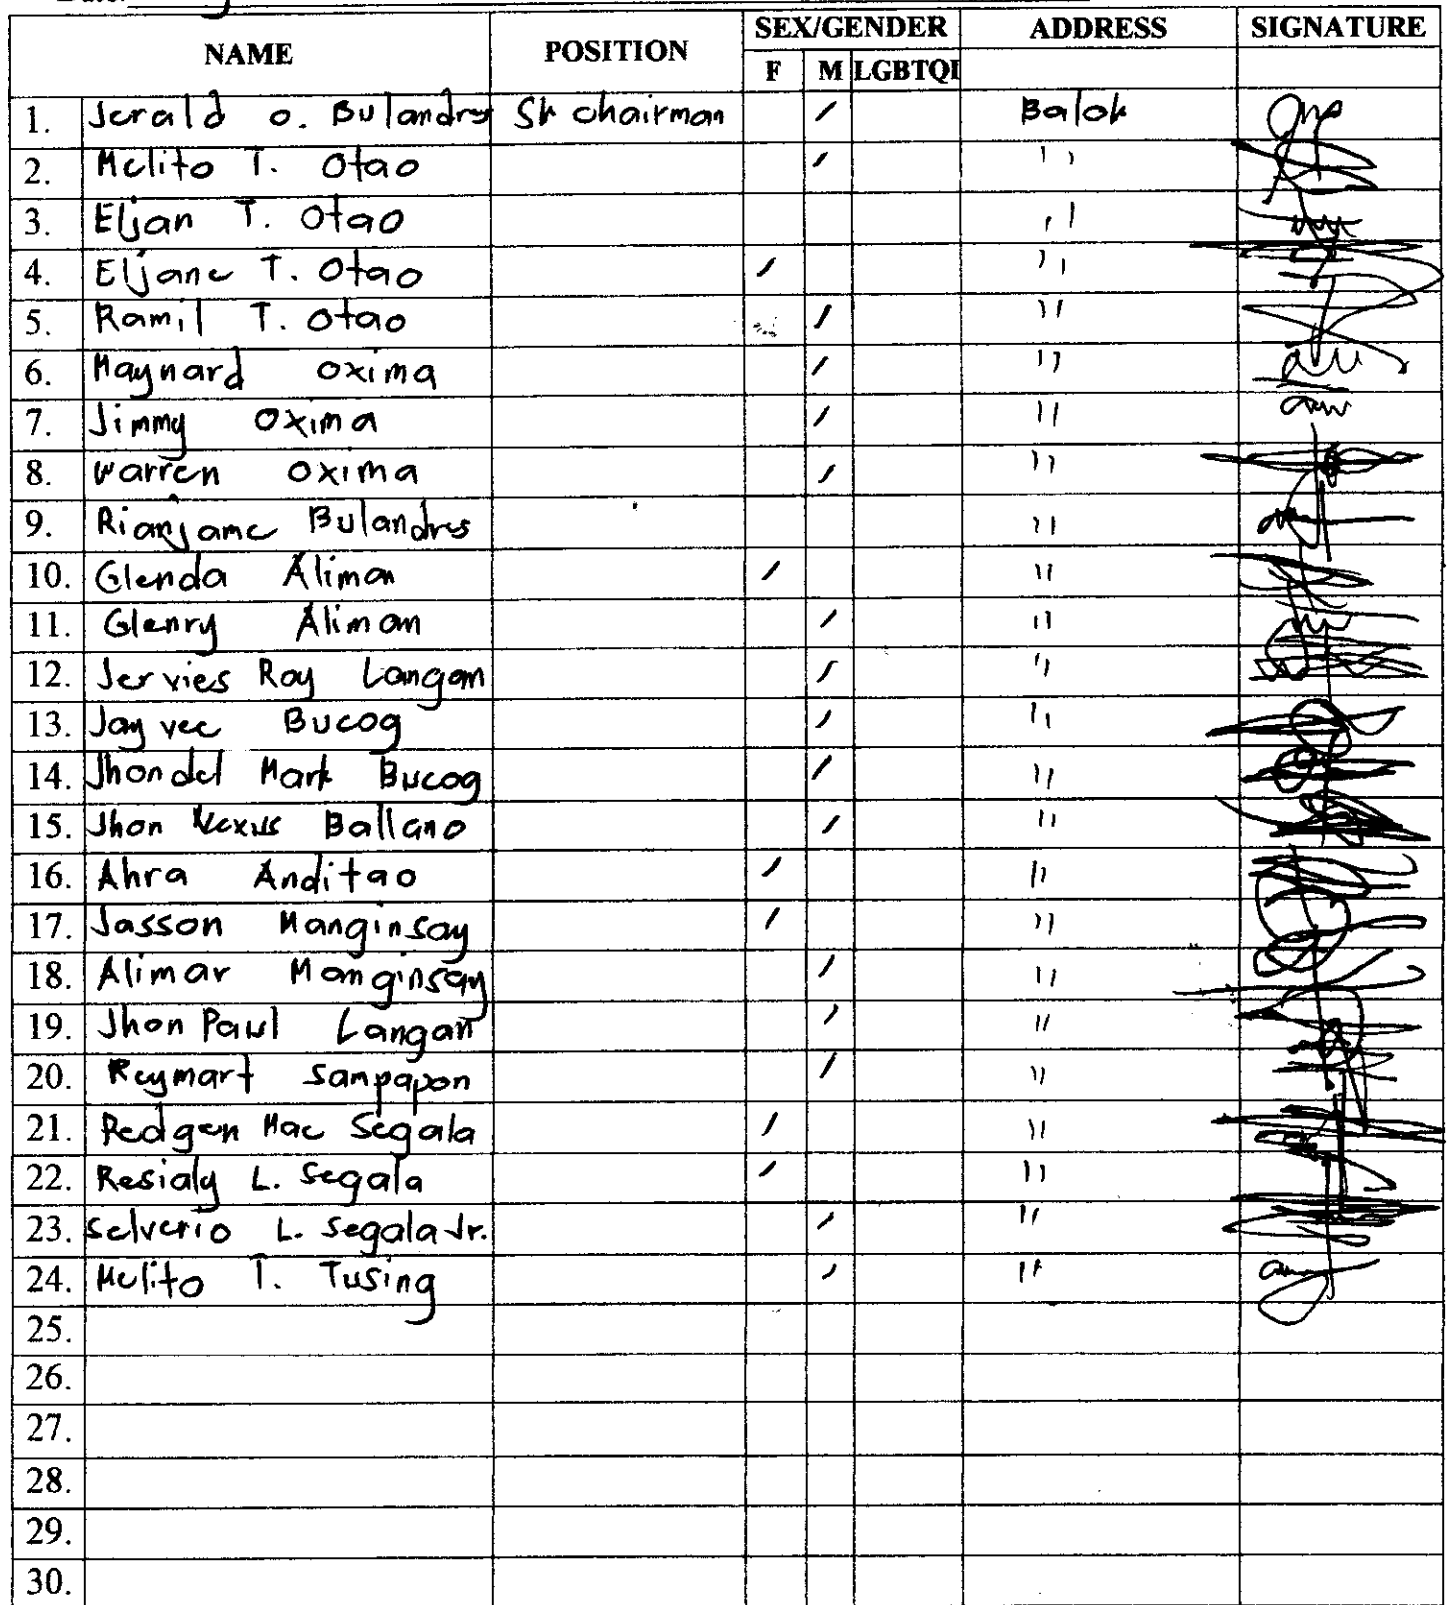 NAME POSITION SEX/GENDER ADDRESS SIGNATURE
F M LGBTQI
1. Jerald O. Bulandres SK chairman / Balok
2. Melito T. Otao / "
3. Eljan T. Otao "
4. Eljane T. Otao / "
5. Ramil T. Otao / "
6. Maynard Oxima / "
7. Jimmy Oxima / "
8. Warren Oxima / "
9. Rianjane Bulandres "
10. Glenda Aliman / "
11. Glenry Aliman / "
12. Jervies Ray Langam / "
13. Jayvee Bucog / "
14. Jhondel Mark Bucog / "
15. Jhon Nexus Ballano / "
16. Ahra Anditao / "
17. Jasson Manginsay / "
18. Alimar Manginsay / "
19. Jhon Paul Langan / "
20. Reymart Sanpapon / "
21. Redgen Mae Segala / "
22. Resialy L. Segala / "
23. Selverio L. Segala Jr. / "
24. Melito T. Tusing / "
25.
26.
27.
28.
29.
30.